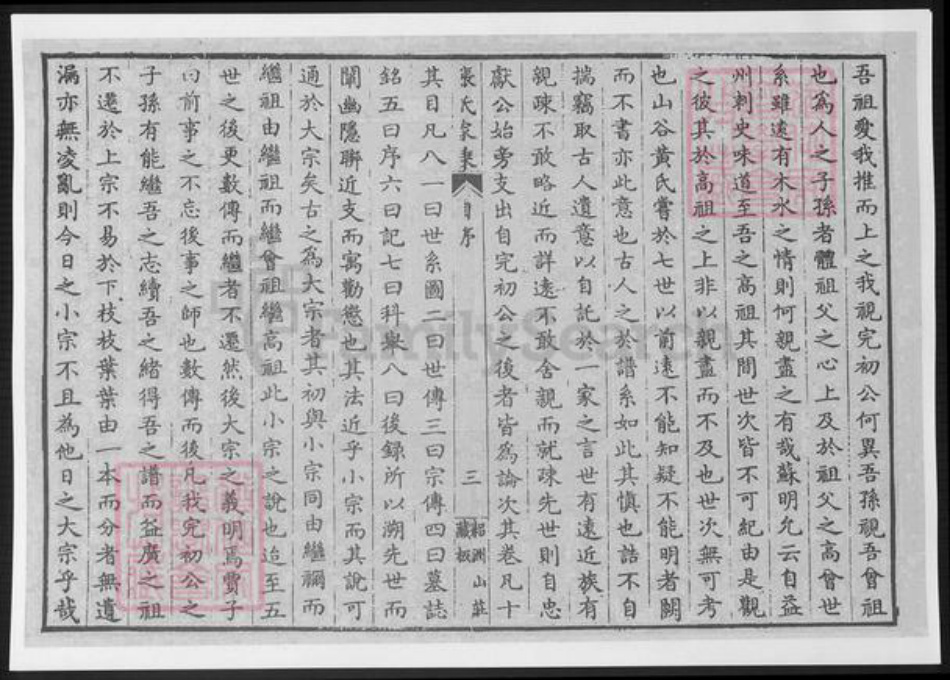 吾祖愛我推而上之我視完初公何異吾孫視吾曾祖
也為人之子孫者體祖父之心上及於祖父之高曾世
系雖遠有木水之情則何親盡之有哉蘇明允云自益
州刺史味道至吾之高祖其間世次皆不可紀由是觀
之彼其於高祖之上非以親盡而不及也世次無可考
也山谷黃氏嘗於七世以前遠不能知疑不能明者闕
而不書亦此意也古人之於譜系如此其慎也誥不自
揣竊取古人遺意以自託於一家之言世有遠近族有
親疎不敢略近而詳遠不敢舍親而就疎先世則自忠
獻公始旁支出自完初公之後者皆為論次其卷凡十
張氏家乘
自序
三
詔洲山莊
藏板
其目凡八一曰世系圖二曰世傳三曰宗傳四曰墓誌
銘五曰序六曰記七曰科舉八曰後録所以溯先世而
闡幽隱聯近支而寓勸懲也其法近乎小宗而其說可
通於大宗矣古之為大宗者其初與小宗同由繼禰而
繼祖由繼祖而繼曾祖繼高祖此小宗之說也迨至五
世之後更數傳而繼者不遷然後大宗之義明焉賈子
曰前事之不忘後事之師也數傳而後凡我完初公之
子孫有能繼吾之志續吾之緒得吾之譜而益廣之祖
不遷於上宗不易於下枝枝葉葉由一本而分者無遺
漏亦無凌亂則今日之小宗不且為他日之大宗乎哉
FamilySearch